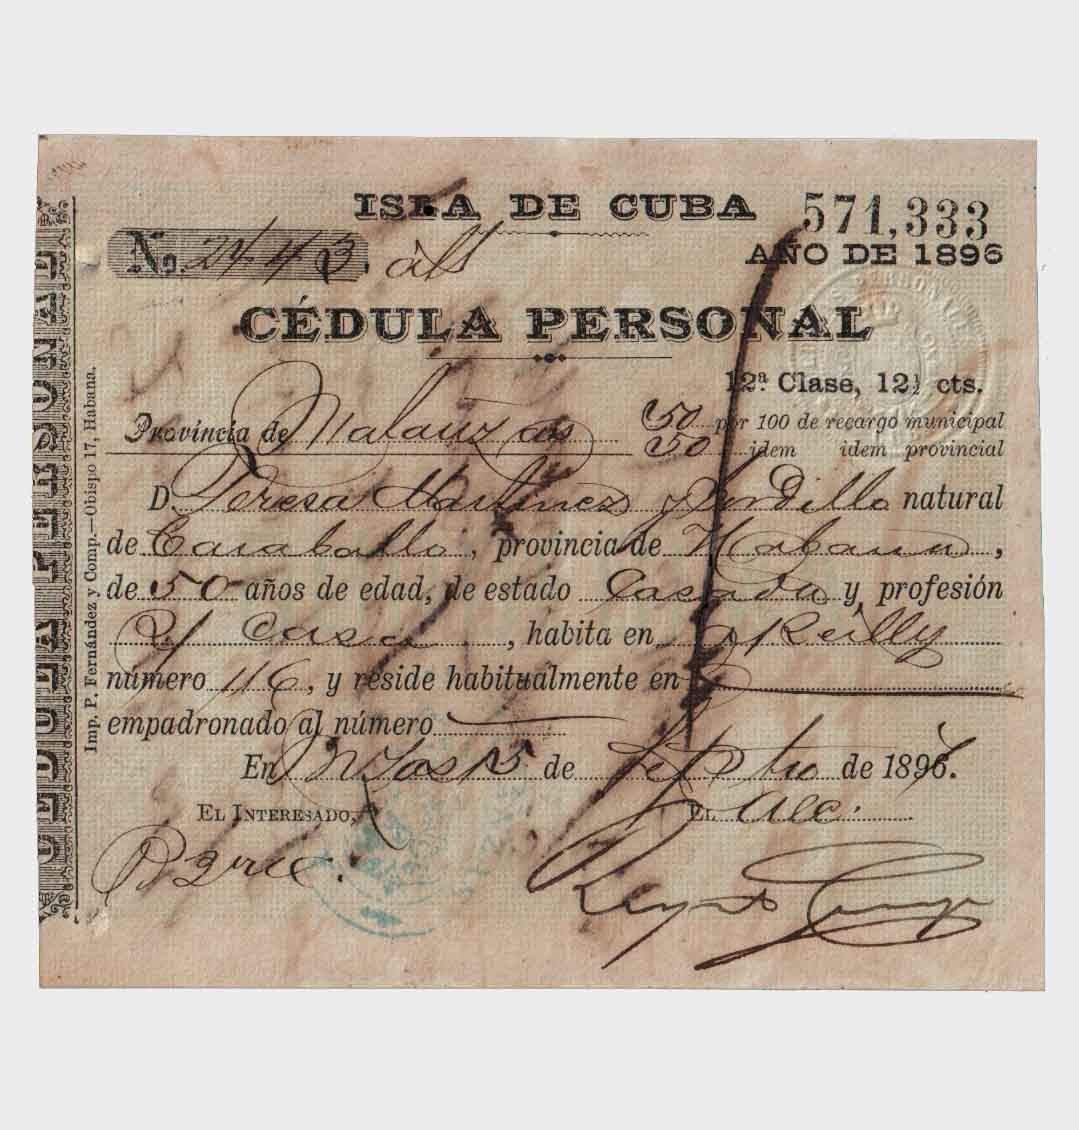 ISLA DE CUBA 571,333
No. 2443.
AÑO DE 1896
CÉDULA PERSONAL
12ª Clase, 12½ cts.
Provincia de Matanzas 50 por 100 de recargo municipal
50 idem idem provincial
D. Teresa Martinez y Gordillo natural
de Caraballo, provincia de Habana,
de 50 años de edad, de estado Casada y profesión
Su casa, habita en O'Reilly
número 116, y reside habitualmente en
empadronado al número
En Mzas 15 de Septbre de 1896.
EL INTERESADO, EL Alc.
CEDULA PERSONAL
Imp. P. Fernández y Comp.—Obispo 17, Habana.